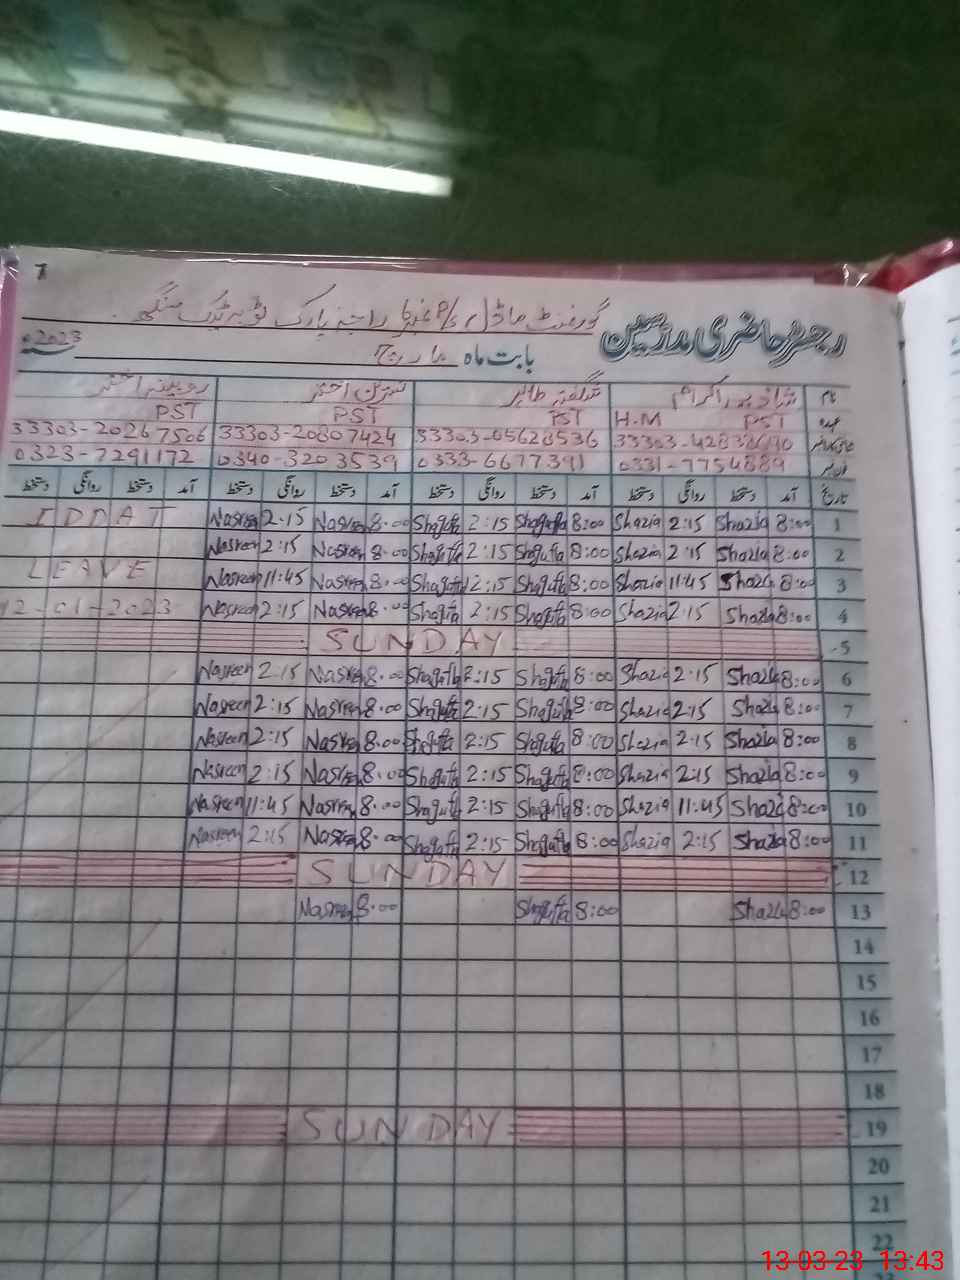 7
گورنمنٹ ماڈل P/S غلہ راجہ پارک ٹوبہ ٹیک سنگھ
رجسٹر حاضری مدرسین
بابت ماہ مارچ 2023ء
نام شازیہ اکرام شگفتہ طاہر نسرین اختر روبینہ اختر
عہدہ PST H.M PST PST PST
33303-05628536 33303-20807424 33303-2026 7506
فون نمبر 0331-7754889 0333-6677391 0340-3203539 0323-7291172
تاریخ آمد دستخط روانگی دستخط آمد دستخط روانگی دستخط آمد دستخط روانگی دستخط آمد دستخط روانگی دستخط
1 8:00 Shazia 2:15 Shazia 8:00 Shagufta 2:15 Shagufta 8.00 Nasreen 2:15 Nasreen IDDAT
2 8:00 Shazia 2:15 Shazia 8:00 Shagufta 2:15 Shagufta 8.00 Nasreen 2:15 Nasreen
3 8:00 Shazia 11:45 Shazia 8:00 Shagufta 12:15 Shagufta 8.00 Nasreen 11:45 Nasreen LEAVE
4 8:00 Shazia 2:15 Shazia 8:00 Shagufta 2:15 Shagufta 8.00 Nasreen 2:15 Nasreen 12-01-2023
5 SUNDAY
6 8:00 Shazia 2:15 Shazia 8:00 Shagufta 2:15 Shagufta 8.00 Nasreen 2:15 Nasreen
7 8:00 Shazia 2:15 Shazia 8:00 Shagufta 2:15 Shagufta 8.00 Nasreen 2:15 Nasreen
8 8:00 Shazia 2:15 Shazia 8:00 Shagufta 2:15 Shagufta 8.00 Nasreen 2:15 Nasreen
9 8:00 Shazia 2:15 Shazia 8:00 Shagufta 2:15 Shagufta 8.00 Nasreen 2:15 Nasreen
10 8:00 Shazia 11:45 Shazia 8:00 Shagufta 2:15 Shagufta 8.00 Nasreen 11:45 Nasreen
11 8:00 Shazia 2:15 Shazia 8:00 Shagufta 2:15 Shagufta 8.00 Nasreen 2:15 Nasreen
12 SUNDAY
13 8:00 Shazia 8:00 Shagufta 8.00 Nasreen
14
15
16
17
18
19 SUNDAY
20
21
22
13-03-23 13:43